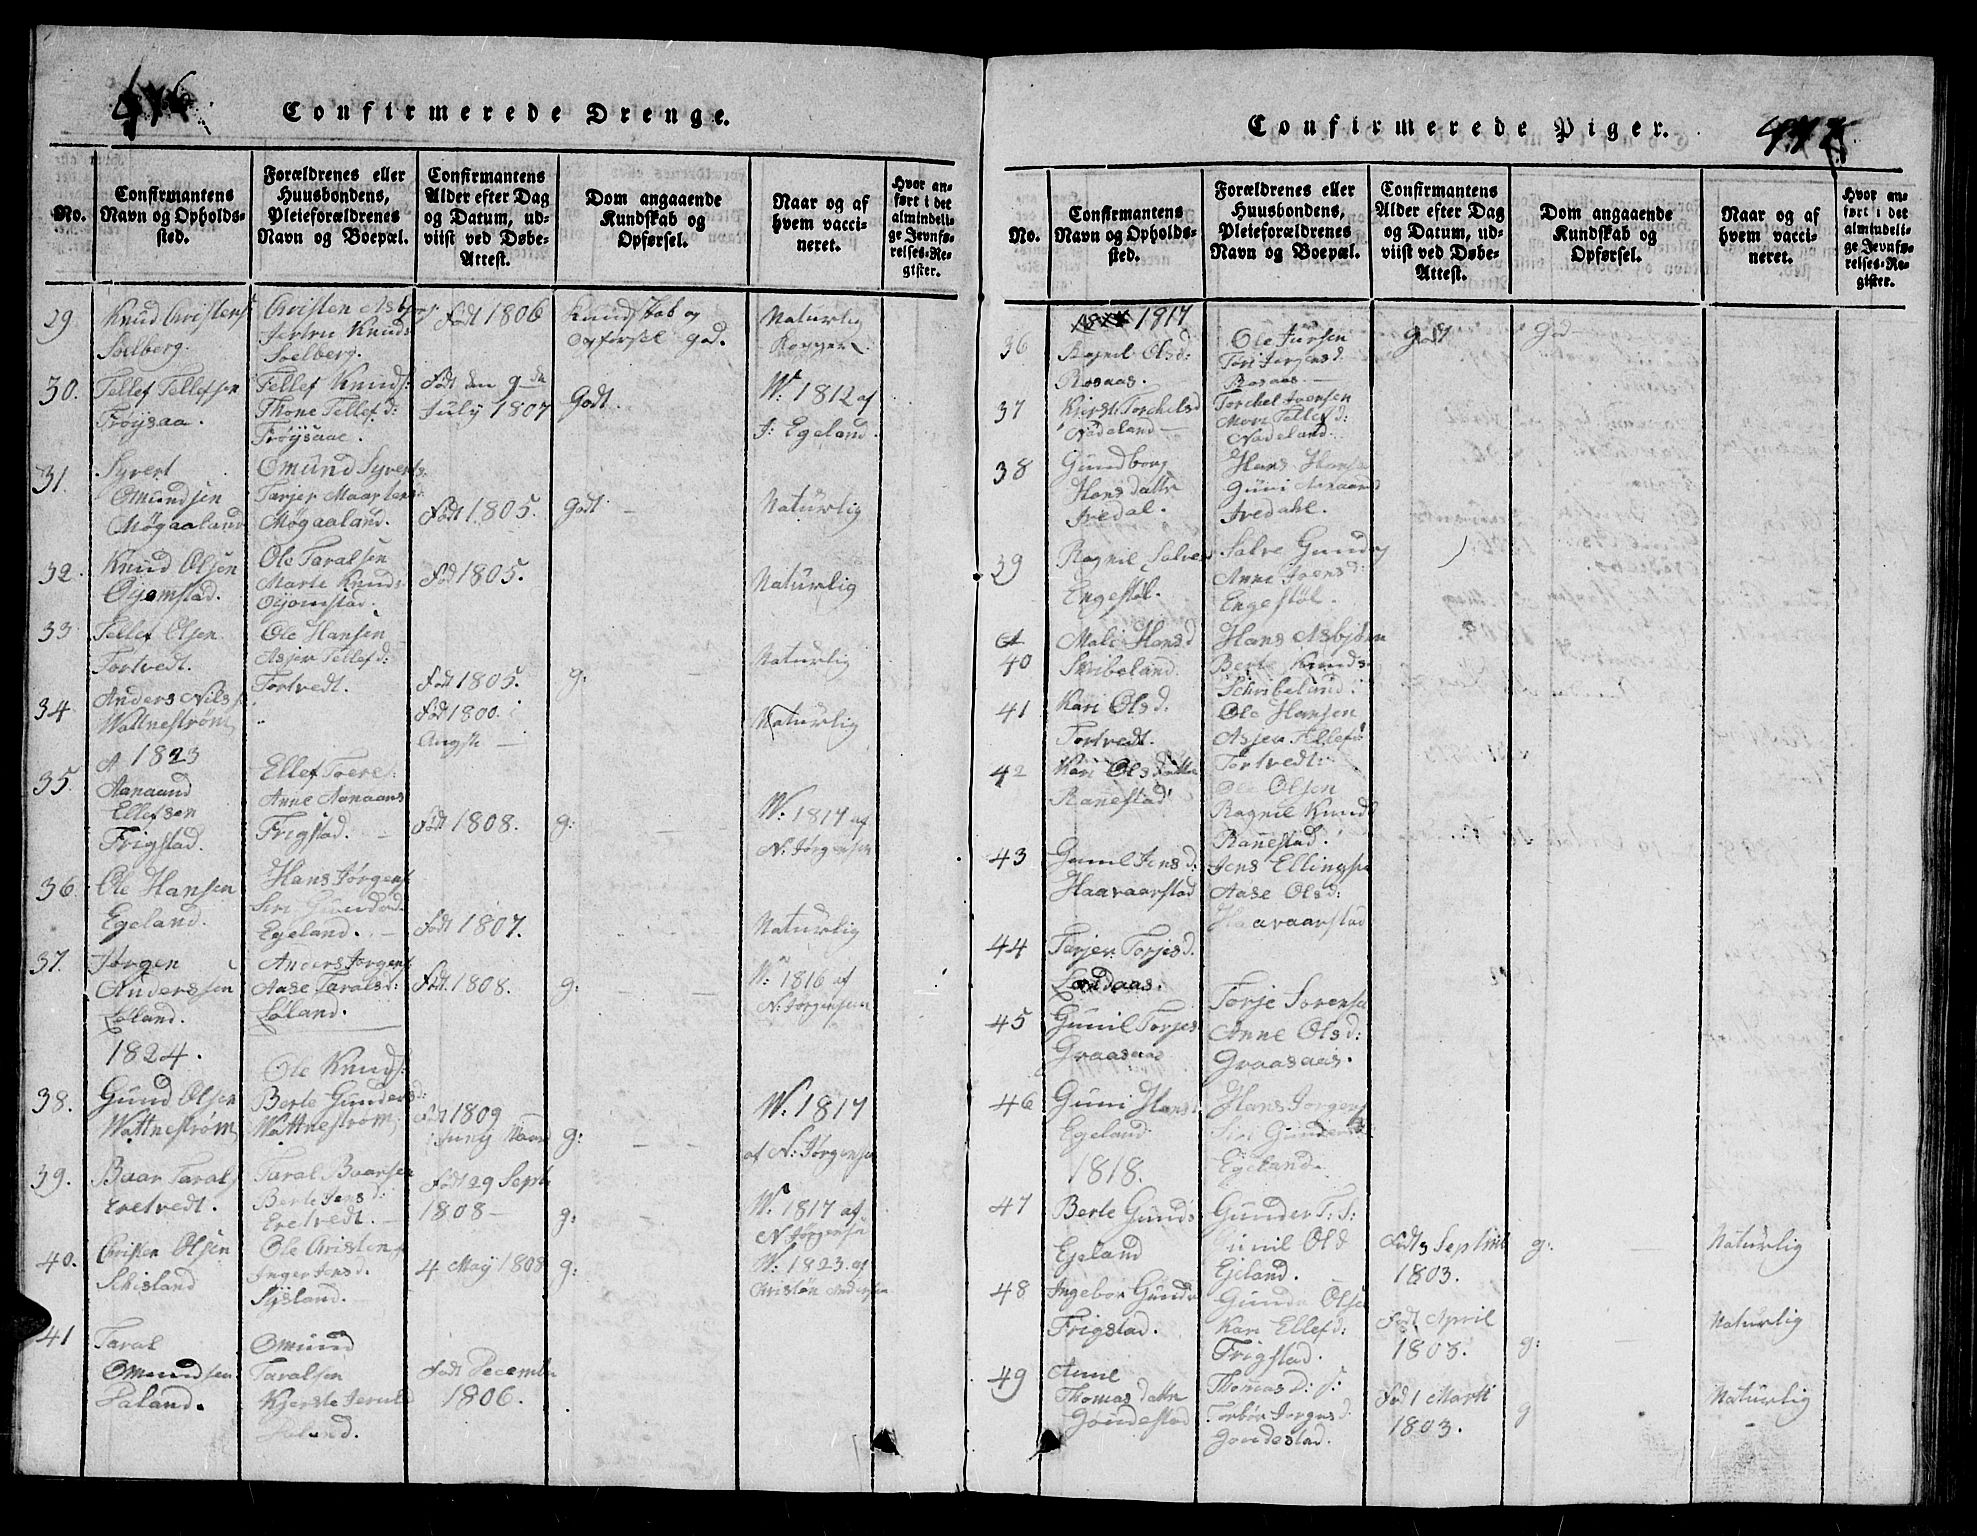 Confirmerede Drenge.
No.
Confirmantens
Navn og Opholds-
sted.
Forældrenes eller
Huusbondens,
Pleieforældrenes
Navn og Boepæl.
Confirmantens
Alder efter Dag
og Datum, ud-
viist ved Døbe-
Attest.
Dom angaaende
Kundskab og
Opførsel.
Naar og af
hvem vacci-
neret.
Hvor an-
ført i det
almindeli-
ge Jevnfø-
relses-Re-
gister.
29
Knud Christens
Solberg.
Christen Asbjørs
Knuds
Soelberg.
Født 1806
Kundskab og
opførsel god.
Naturlig
Kopper
30.
Tellef Tellefsen
Frøysaa.
Tellef Knuds:
Thone Tellefd:
Frøysaae.
Født den 9de
July 1807
Godt.
V: 1812 af
J: Egeland.
31.
Syvert
Omundsen
Møgaaland
Omund Syverts.
Tarjer Maartens
Møgaaland.
Født 1805.
Godt.
Naturlig
32.
Knud Olsen
Øyomstad.
Ole Taralsen
Marte Knuds:
Øyomstad.
Fød 1805.
Naturlig
33
Tellef Olsen
Tortvedt.
Ole Hansen
Asjer Tellefd:
Tortvedt.
Født 1805.
g:
Naturlig
34
Anders Nils
Wattnestrøm
Fød 1800.
Naturlig
A 1823
35.
Aanaund
Ellefsen
Frigstad.
Ellef Toeres:
Anne Aanaans
Frigstad.
Født 1808.
g:
V: 1817 af
N: Jørgensen
36
Ole Hansen
Egeland.
Hans Jørgens
Siri
Egeland.
Født 1807.
Naturlig
37.
Jørgen
Anderssen
Løland.
Anders Jørgens
Aase Taralsd:
Løland.
Født 1808.
g:
V: 1816 af
N: Jørgensen
1824.
38.
Gund Olsen
Wattnestrøm
Ole Knuds
Berte Gundersd:
Wattnestrøm
Født 1809
g:
V: 1817
af N: Jørgense
39.
Baar Tarals
Eretvedt.
Taral Baarsen
Berte Jensd:
Eretvedt.
Født 29 Sept
1808
g:
V: 1817 af
N Jørgensen
40.
Christen Olsen
Schisland
Ole Christens
Inger Jensd.
Sysland.
4 May 1808
g:
V: 1823. af
Christen Andersen
41
Taral
Omundsen
Paland.
Omund
Taralsen
Kjerste
Paland.
Født December
1806.
Confirmerede Piger.
No.
Confirmantens
Navn og Opholds-
sted.
Forældrenes eller
Huusbondens,
Pleieforældrenes
Navn og Boepæl.
Confirmantens
Alder efter Dag
og Datum, ud-
viist ved Døbe-
Attest.
Dom angaaende
Kundskab og
Opførsel.
Naar og af
hvem vacci-
neret.
Hvor an-
ført i det
almindeli-
ge Jevnfø-
relses-Re-
gister.
1917
36
Ragnil Olsd:
Rosaas.
Ole
Tori Jørgensd:
Rosaas.
Godt
God
37
Kirsti Torchelsd
Nødeland
Torchel Joensen
Mari Tellefd:
Nødeland.
38
Gundborg
Hansdatte
Ivedal.
Hans Hansen
Guni Aanaand
Ivedahl.
39
Ragnil Salves
Engestøl.
Salve Gunders
Anne Joensd:
Engestøl.
40
Mali Hansd
Skibeland.
Hans Asbjøren
Berte Knuds
Schibeland:
41
Kari Olsd.
Tortvedt.
Ole Hansen
Asjer Tellefd
Tortvedt:
42
Kari Olsdatter
Ranestad
Ole Olsen
Ragnil Knuds
Ranestad.
43
Gunil Jensd:
Haavaarstad
Jens Ellingsen
Aase Olsd:
Haavaarstad
44
Tarjer Torjesd.
Londaas.
45
Gunil Torjes
Graasaas
Torje Sorensen
Anne Olsd:
Graasaas.
46
Guni Hans
Egeland
Hans Jørgens
Siri Gunders
Egeland.
1818.
47
Berte Gunds
Ejeland
Gunder T: S:
Gunil Olsd
Ejeland.
Født 3 Septbr
1803.
g:
Naturlig
48
Ingebor Gunder
Frigstad.
Gunder Olsen
Kari Ellefd:
Frigstad.
Født April
1803.
g:
Naturlig
49
Anne
Thomasdatte
Gondestad
Thomas D: S:
Torbor Jørgensd.
Gondestad.
Født 1 Marti
1803.
g
Naturlig